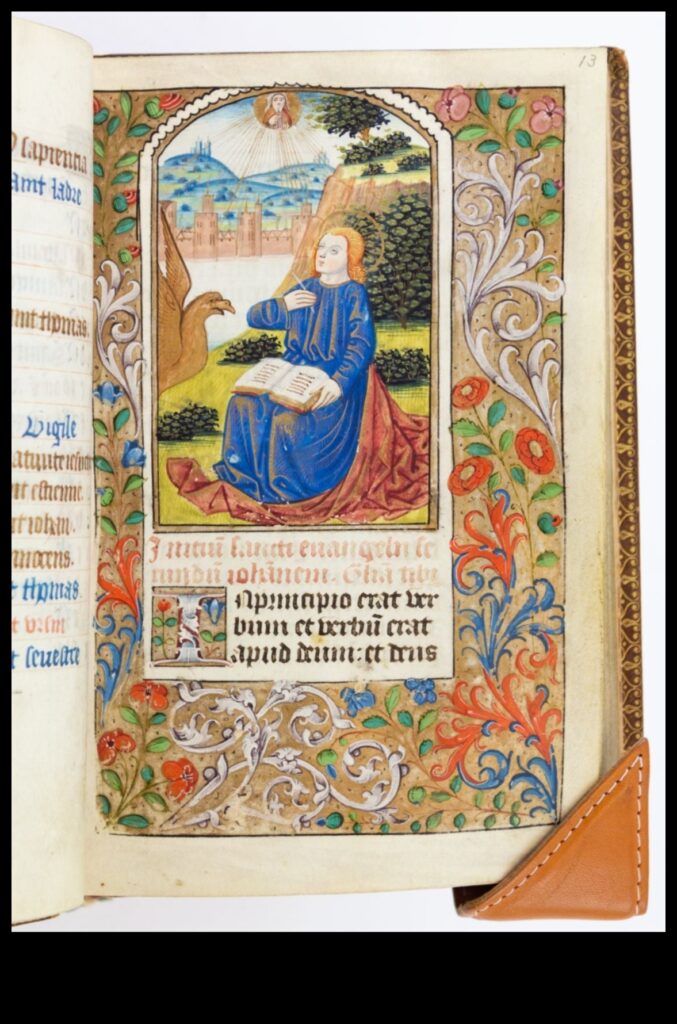 sapiencia
saint ladre
thomas.
Vigile
estienne.
iohan.
innocens.
thomas.
vrsin
seuestre
13
Initiū sancti euangelii se
cundū iohannem. Gl̄ia tibi
In principio erat ver
bum et verbū erat
apud deum: et deus